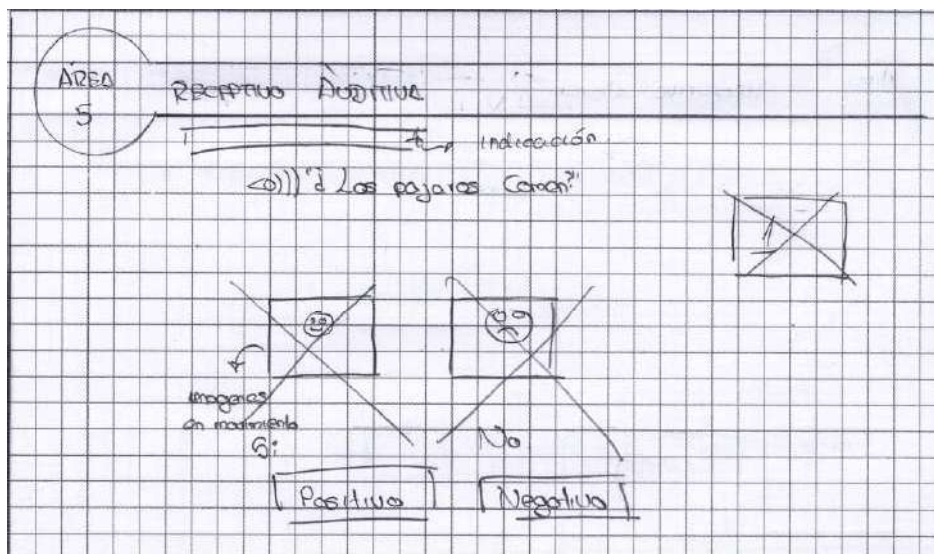 ÁREA
5
RECEPTIVO AUDITIVA
indicación
"¿Los pajaros Comen?"
1
imagenes
en movimiento
Si
No
Positivo
Negativo